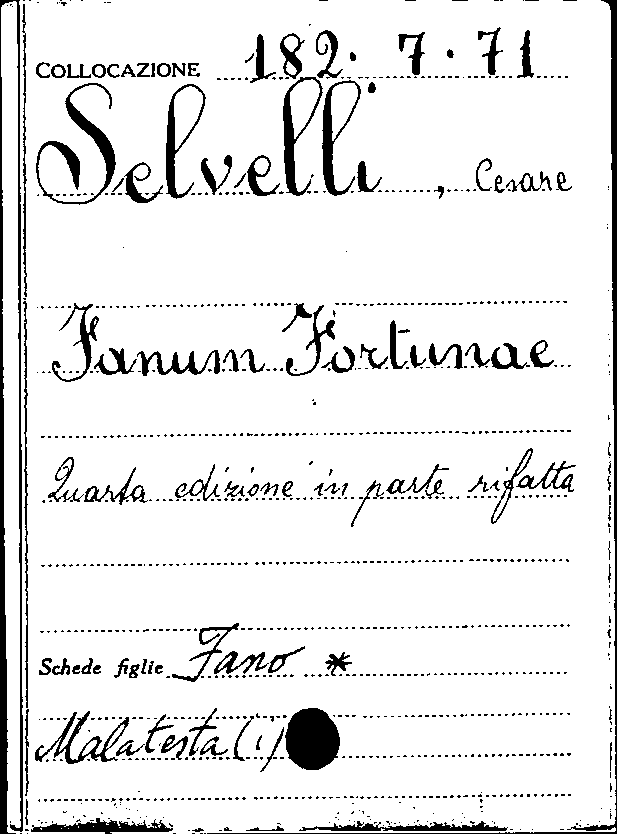 COLLOCAZIONE 182. 7. 71
Selvelli, Cesare
Fanum Fortunae
Quarta edizione in parte rifatta
Schede figlie Fano *
Malatesta (i)